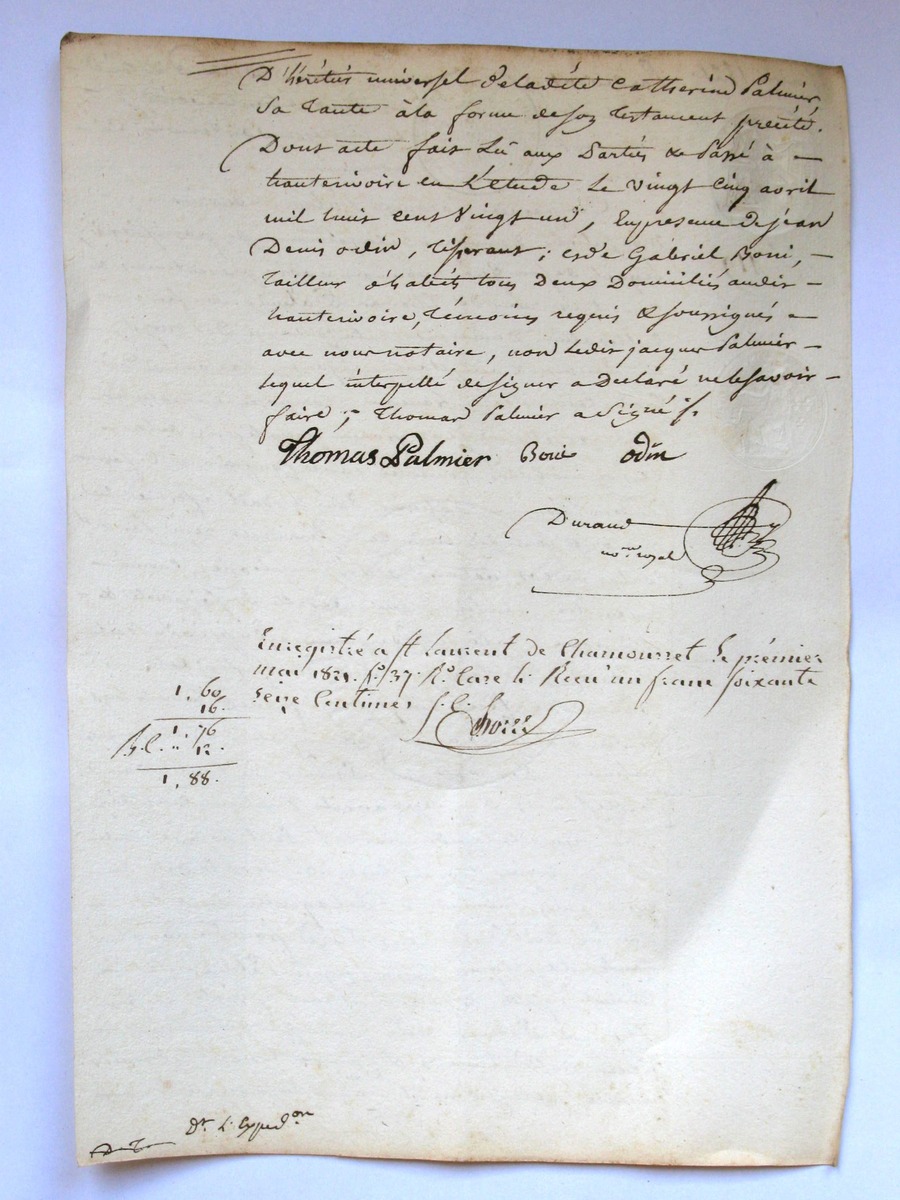 D'héritier universel de ladite Catherine Palmier
Sa Tante à la forme de son Testament précité.
Dont acte fait Lu aux Parties & Passé à
hauterivoire en L'étude Le vingt Cinq avril
mil huit cent Vingt un, En presence de jean
Denis odin, Tisserant; et de Gabriel Boni,
Tailleur d'habits tous Deux Domiciliés audit
hauterivoire, Témoins requis & soussignés
avec nous notaire, non Ledit jacques Palmier
Lequel interpellé de signer a Déclaré ne le savoir
faire; Thomas Palmier a Signé
Thomas Palmier Boni odin
Durand
no.re royal
Enregistré a St Laurent de Chamousset Le prémier
mai 1821. f.o 37. R.o Case Reçu un franc soixante
seize Centimes
1,60
16.
1,76
12.
1,88.
Dt L'Expedon